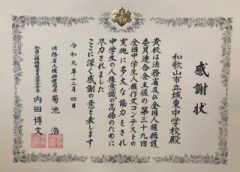 感謝状
和歌山市立城東中学校殿
貴校は法務省及び全国人権擁護
委員連合会主催の第三十九回
全国中学生人権作文コンテストの
実施に多大な協力をされ
中学生の人権意識の高揚のために
尽力されました
ここに深く感謝の意を表します
令和元年十二月四日
法務省人権擁護局長 菊池浩
全国人権擁護委員連合会会長 内田博文